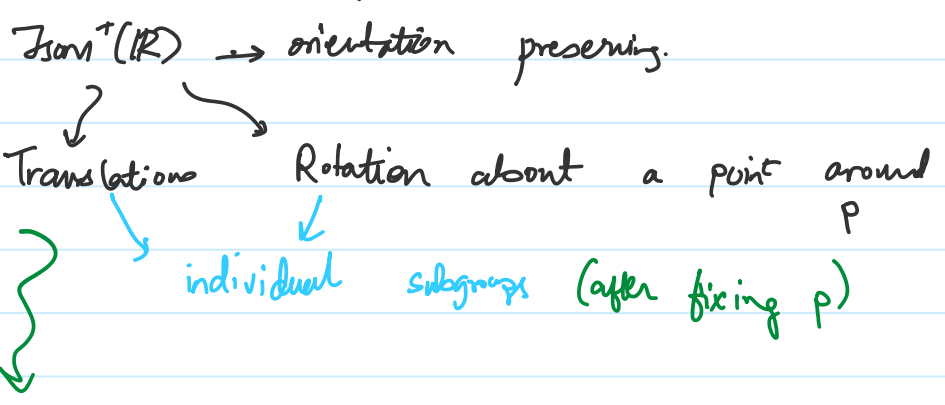 Isom⁺(ℝ) → orientation preserving.
Translations Rotation about a point around
p
individual subgroups (after fixing p)